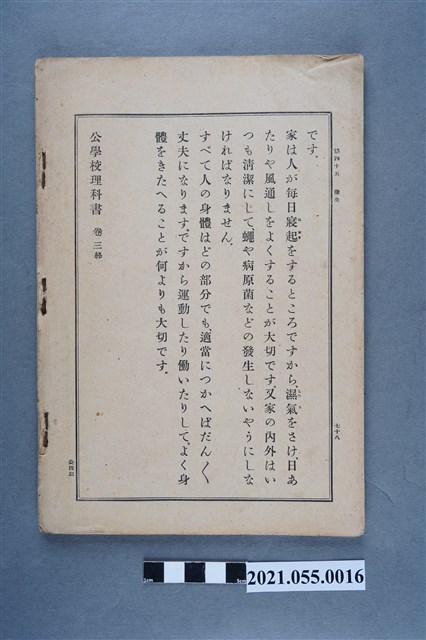 第四十五 衞生
七十八
です。
家は人が毎日寢起をするところですから、濕氣をさけ、日あ
たりや風通しをよくすることが大切です。又家の內外はい
つも淸潔にして、蠅や病原菌などの發生しないやうにしな
ければなりません。
すべて人の身體はどの部分でも、適當につかへばだん〱
丈夫になります。ですから運動したり働いたりして、よく身
體をきたへることが何よりも大切です。
公學校理科書 卷三終
2cm
5cm
2021.055.0016